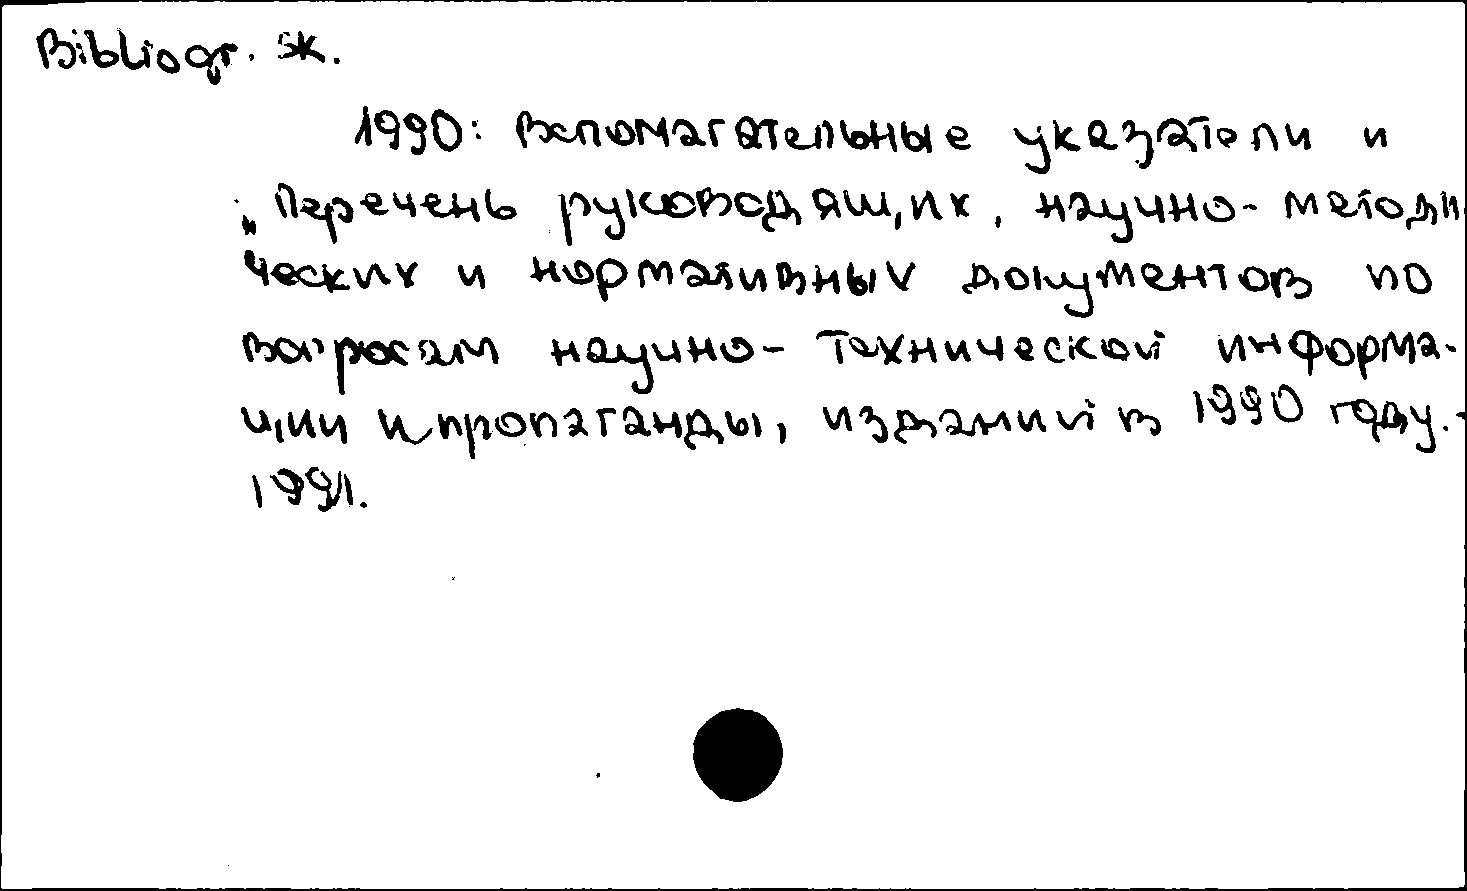 Bibliogr. sk.
1990: Вспомагательные указатели и
„Перечень руководящих, научно-методи
ческих и нормативных документов по
вопросам научно-технической информа-
ции и пропаганды, изданий в 1990 году.-
1991.